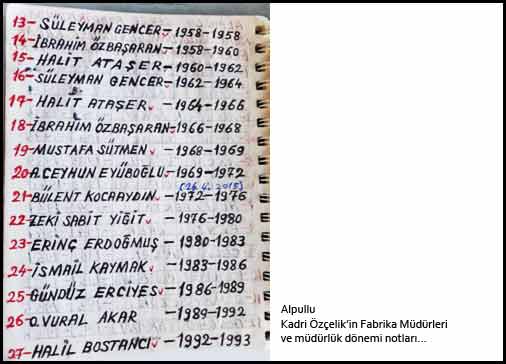 13- SÜLEYMAN GENCER - 1958-1958
14- İBRAHİM ÖZBAŞARAN - 1958-1960
15- HALİT ATAŞER - 1960-1962
16- SÜLEYMAN GENCER - 1962-1964
17- HALİT ATAŞER - 1964-1966
18- İBRAHİM ÖZBAŞARAN - 1966-1968
19- MUSTAFA SÜTMEN - 1968-1969
20- A.CEYHUN EYÜBOĞLU - 1969-1972
(26.4.2015)
21- BÜLENT KOCAAYDIN - 1972-1976
22- ZEKİ SABİT YİĞİT - 1976-1980
23- ERİNÇ ERDOĞMUŞ - 1980-1983
24- İSMAİL KAYMAK - 1983-1986
25- GÜNDÜZ ERCİYES - 1986-1989
26- O.VURAL AKAR - 1989-1992
27- HALİL BOSTANCI - 1992-1993
Alpullu
Kadri Özçelik'in Fabrika Müdürleri
ve müdürlük dönemi notları...